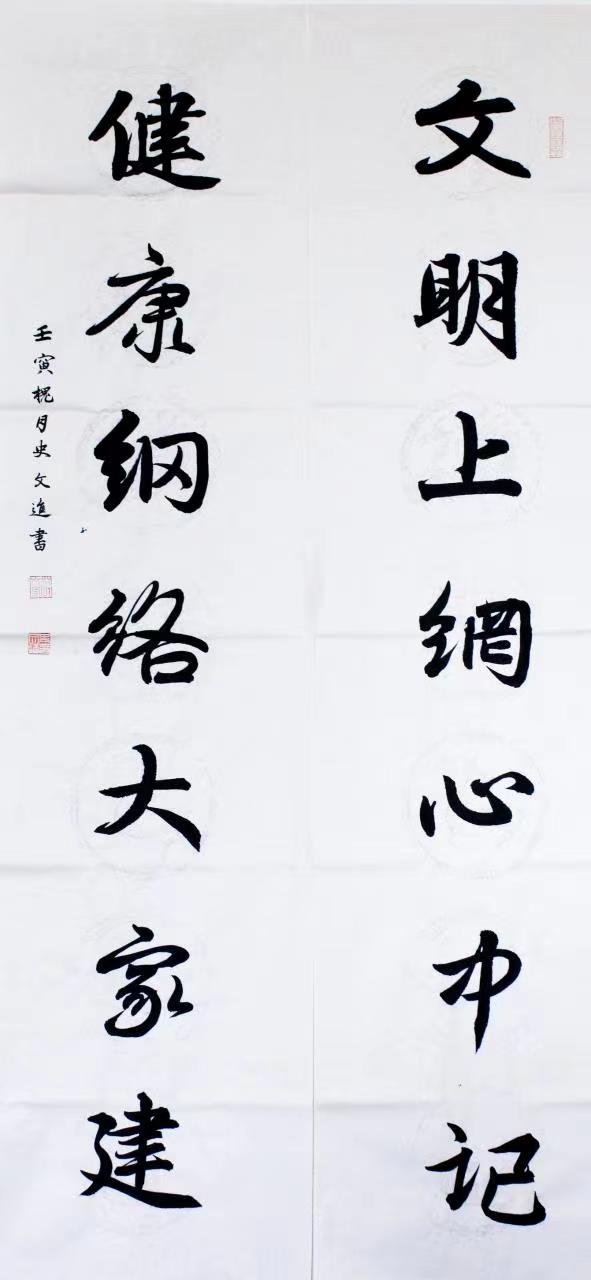 文明上網心中记
健康纲络大家建
壬寅槐月史文進書